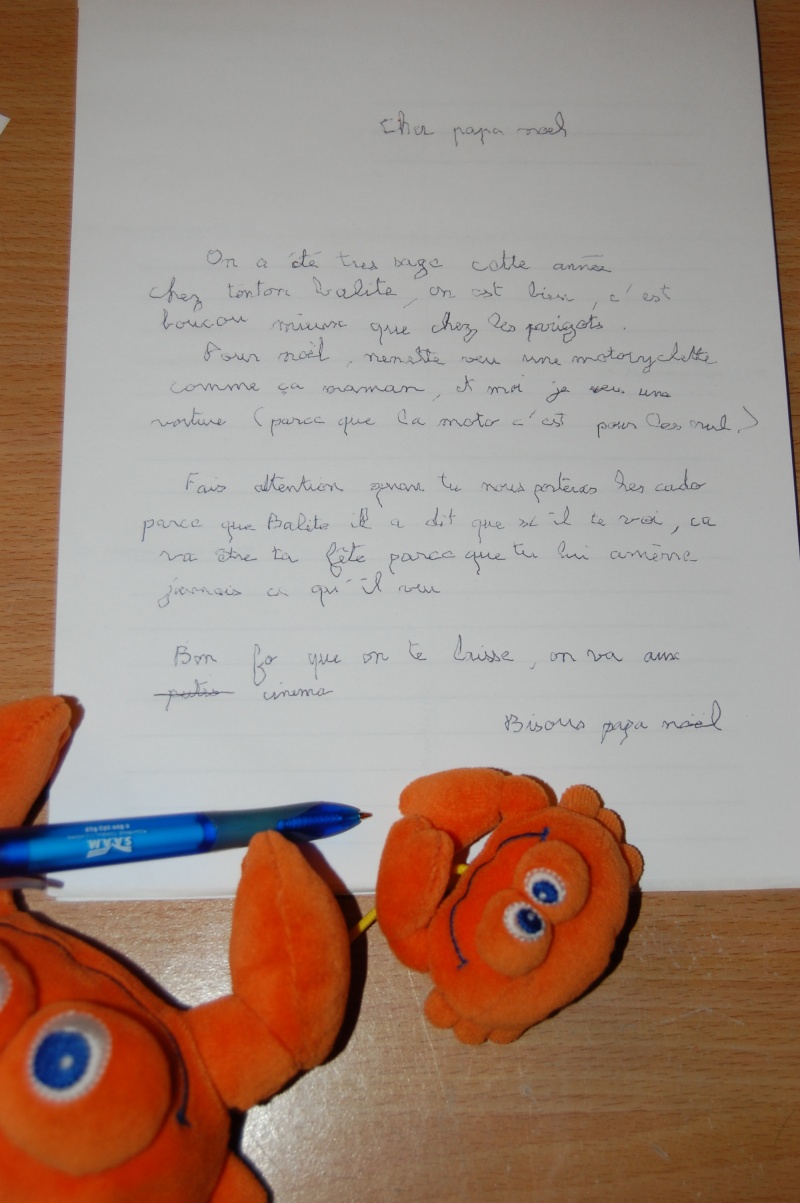 Cher papa noël
On a été tres sage cette année
chez tonton Balite, on est bien, c'est
boucou mieux que chez les parigots.
Pour noël, nenette veu une motocyclette
comme ça maman, et moi je veu une
voiture (parce que la moto c'est pour les nul.)
Fais attention quan tu nous porteras les cado
parce que Balite il a dit que si il te voi, ca
va être ta fête parce que tu lui amène
jamais ce qu'il veu
Bon fo que on te laisse, on va aux
cinema
Bisous papa noël